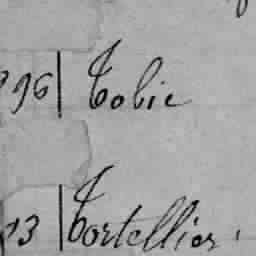 96 | Tobie
13 | Tortellier.